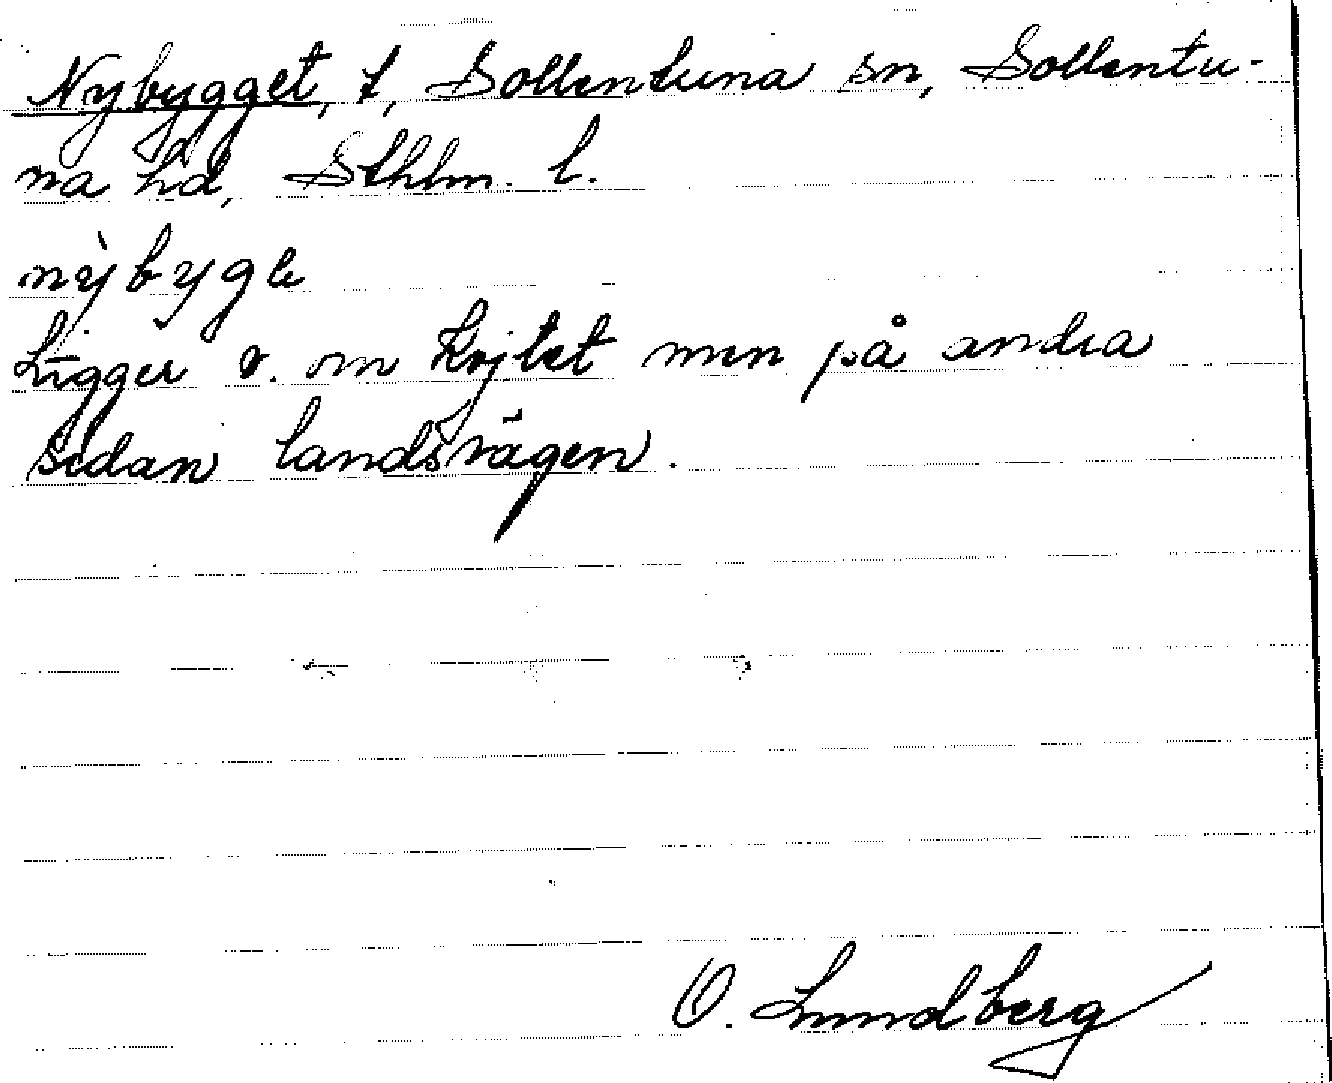 Nybygget, t, Sollentuna sn, Sollentu-
na hd, Sthlm. l.
nỳbygle
Ligger v. om Kojtet men på andra
sidan landsvägen.
O. Lundberg